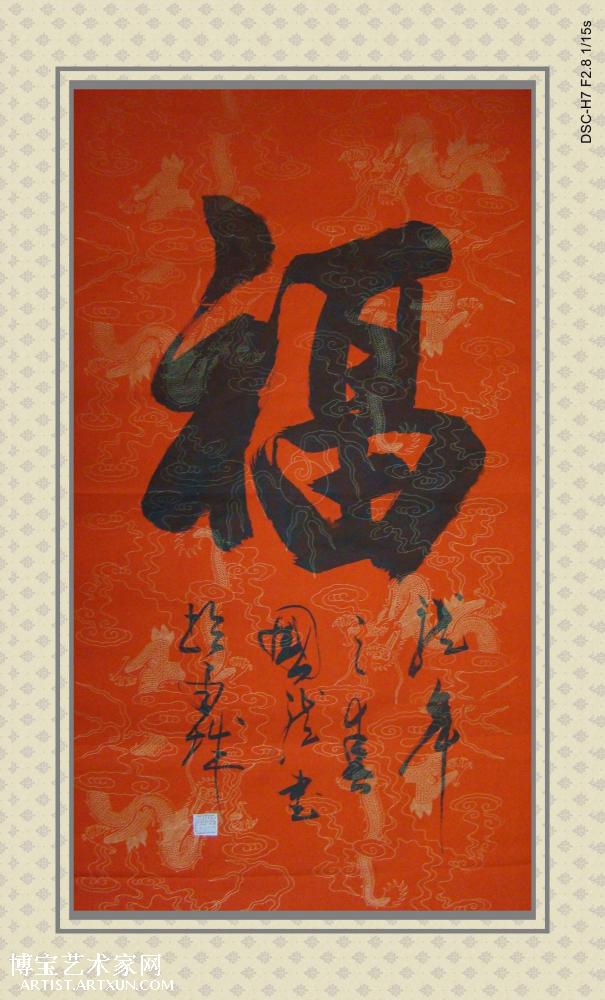 福
龙年
之春
國 书
於 城
DSC-H7 F2.8 1/15s
博宝艺术家网
ARTIST.ARTXUN.COM